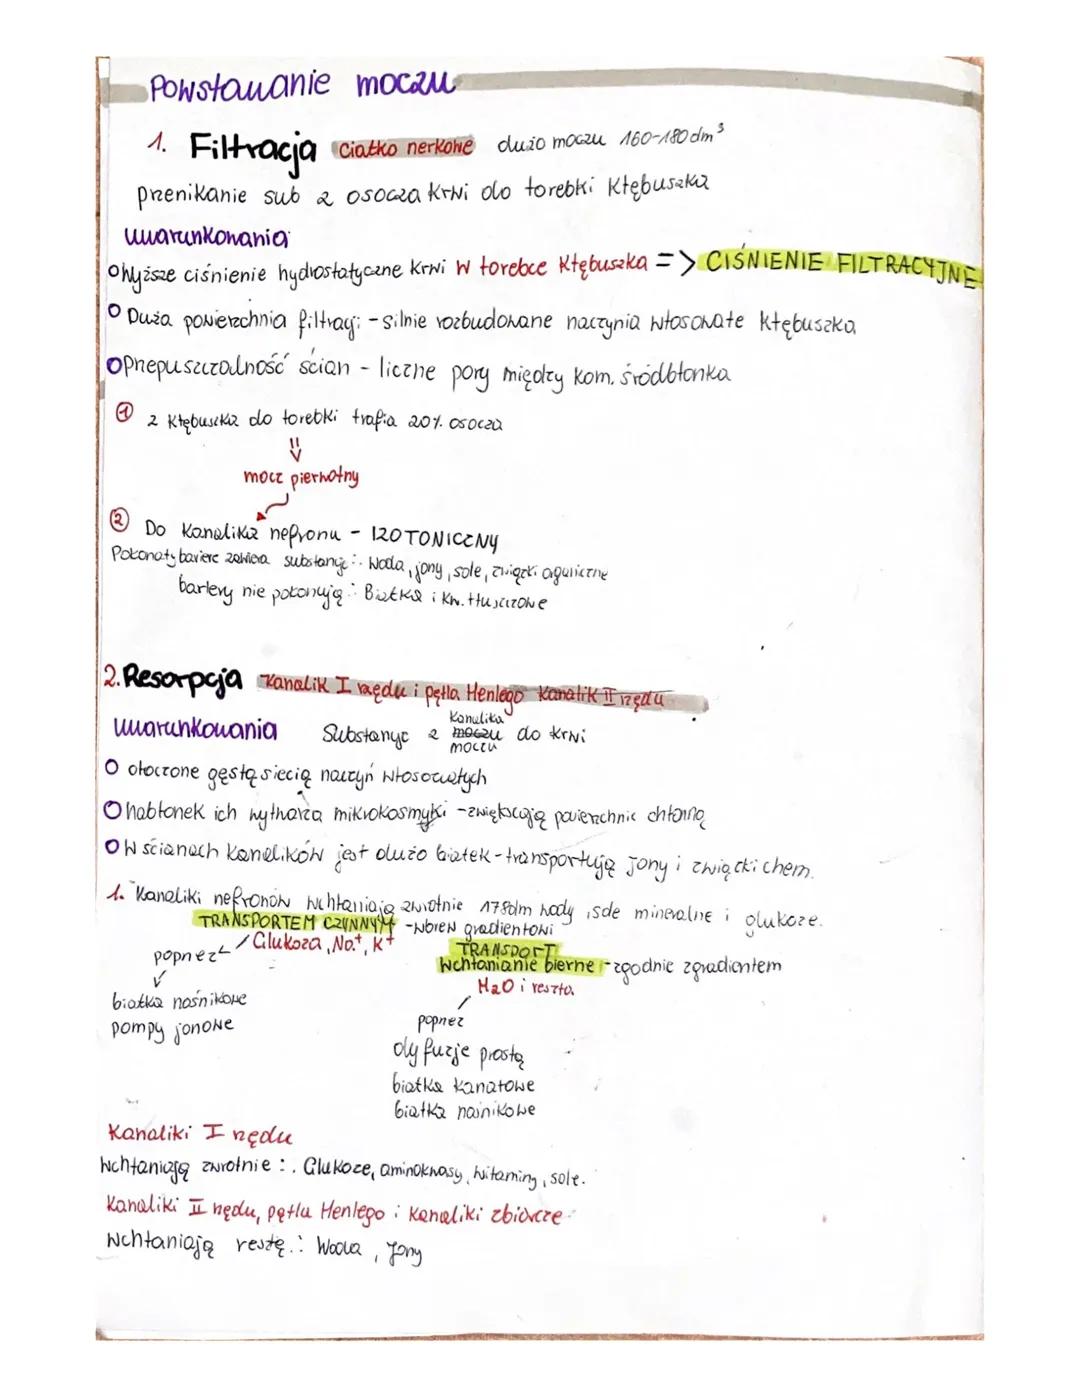 Powstawanie moczu
1. Filtracja ciałko nerkowe dużo moczu 160-180 dm³
przenikanie sub z osocza krwi do torebki kłębuszka
uwarunkowania
Wyższe ciśnienie hydrostatyczne krwi w torebce kłębuszka => CIŚNIENIE FILTRACYJNE
Duża powierzchnia filtracji - silnie rozbudowane naczynia włosowate kłębuszka
Przepuszczalność ścian - liczne pory między kom. śródbłonka
① z kłębuszka do torebki trafia 20% osocza
mocz pierwotny
② Do kanalika nefronu - IZOTONICZNY
Pokonały barierę zawiera substancje: Woda, jony, sole, związki organiczne
bariery nie pokonują: Białka i kw. tłuszczowe
2. Resorpcja Kanalik I rzędu i pętla Henlego Kanalik II rzędu
uwarunkowania Substancje z moczu do krwi
kanalika
moczu
otoczone gęstą siecią naczyń włosowatych
nabłonek ich wytwarza mikrokosmyki - zwiększają powierzchnie chłonną
W ścianach kanalików jest dużo białek - transportują jony i związki chem.
1. Kanaliki nefronów wchłaniają zwrotnie 178dm wody, sole mineralne i glukoze.
TRANSPORTEM CZYNNYM - wbrew gradientowi
Glukoza, Na⁺, K⁺
poprzez
białka nośnikowe
pompy jonowe
TRANSPORT
Wchłanianie bierne - zgodnie z gradientem
H₂O i reszta
poprzez
dyfuzje prostą
białka kanałowe
białka nośnikowe
Kanaliki I rzędu
wchłaniają zwrotnie: Glukoze, aminokwasy, witaminy, sole.
Kanaliki II rzędu, pętla Henlego i kanaliki zbiorcze
wchłaniają resztę: Woda, jony